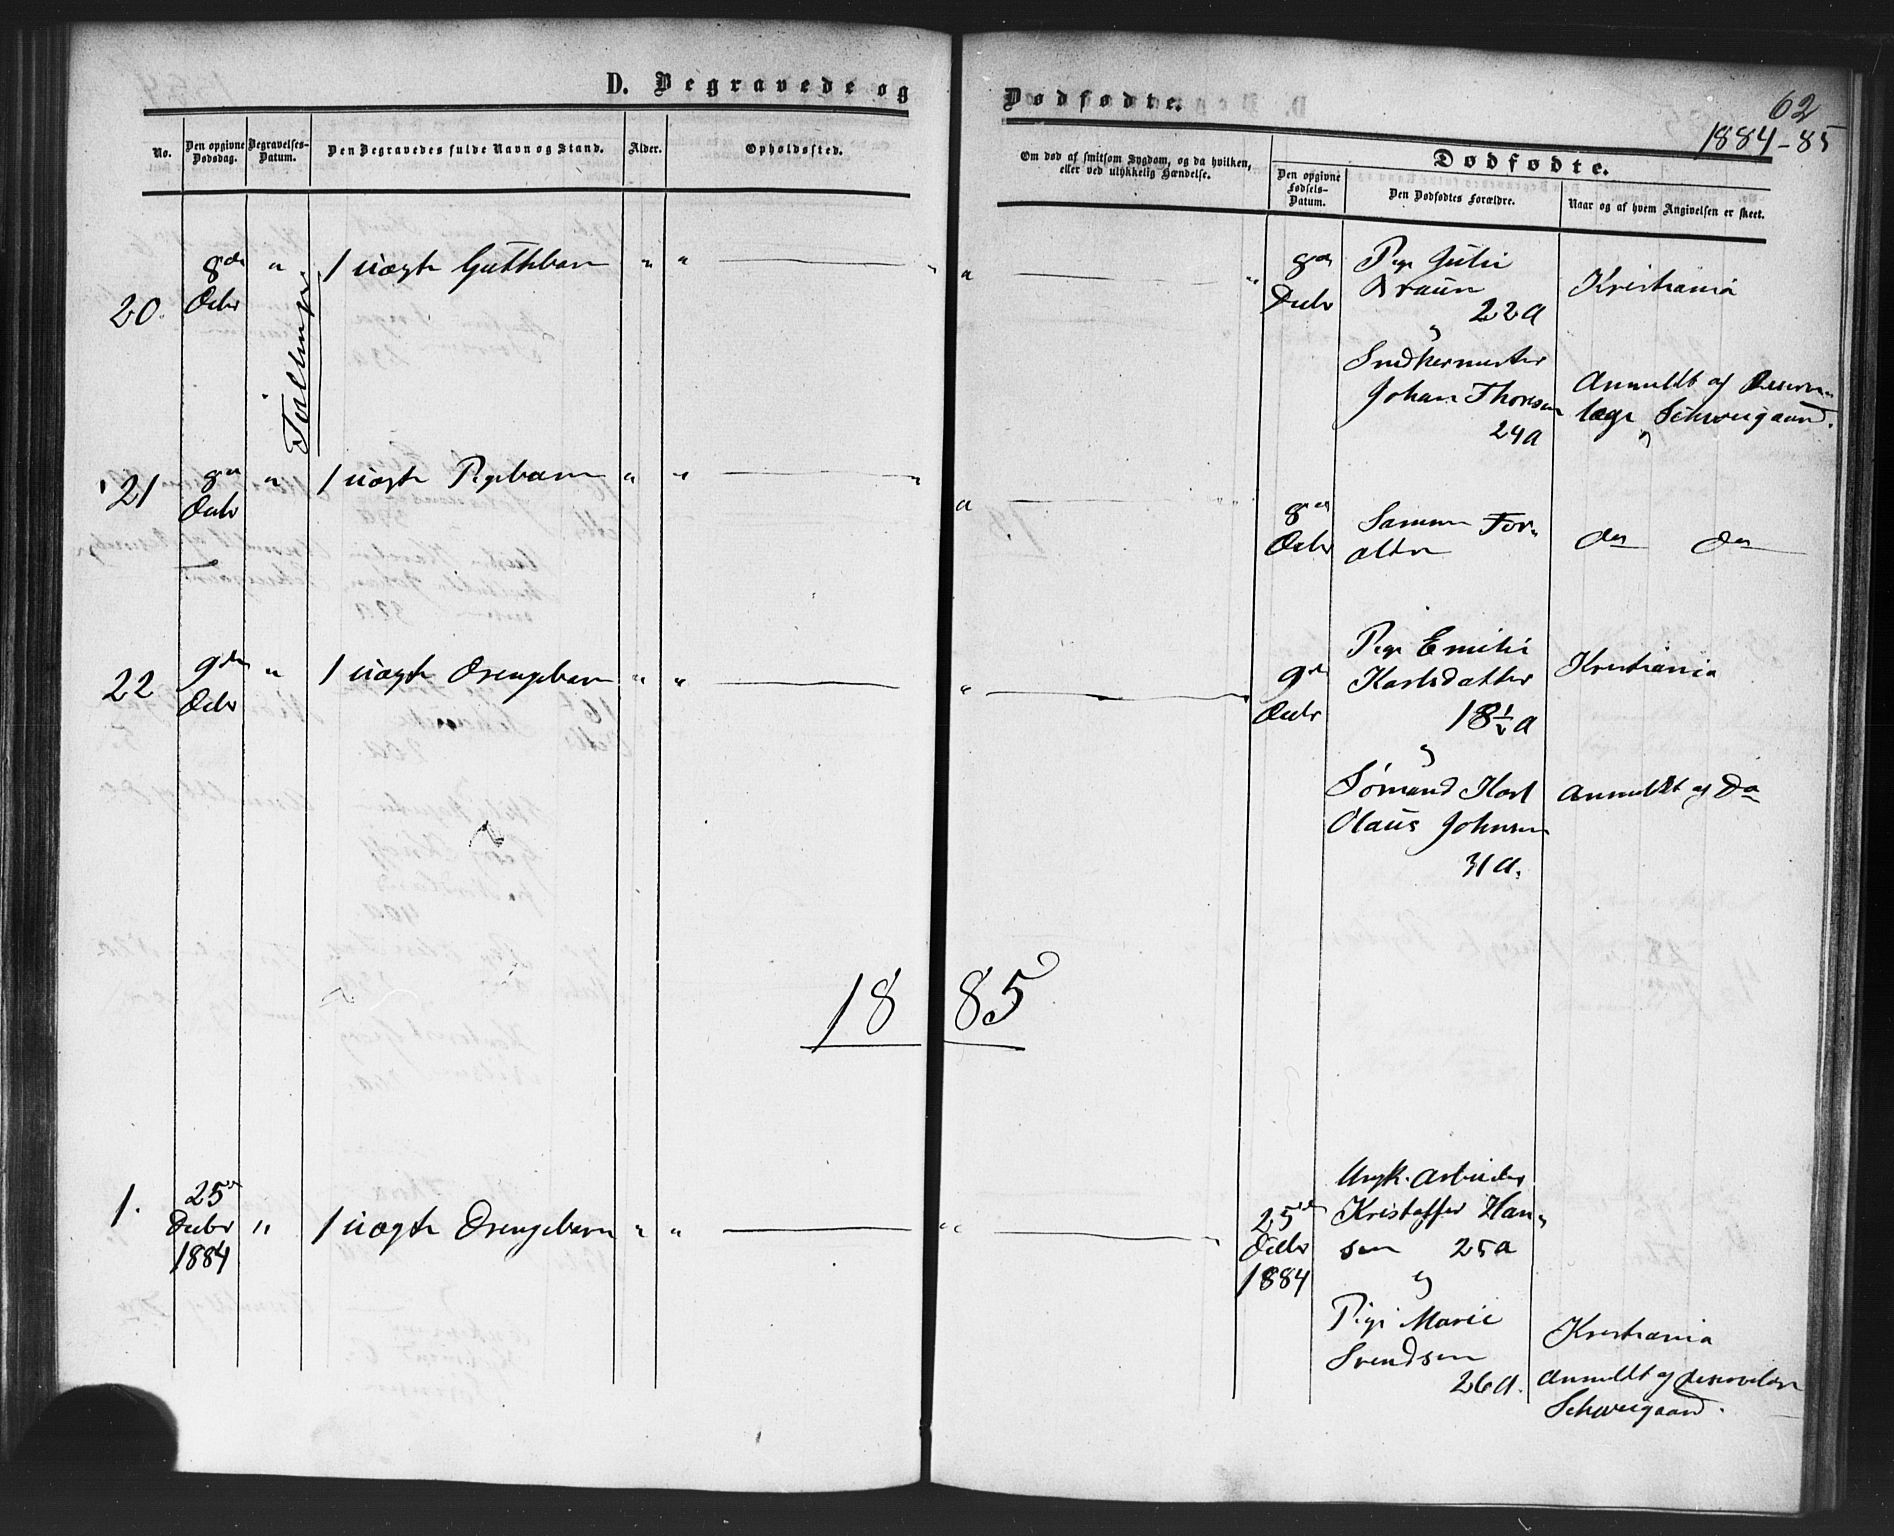 D. Begravede og
Dødfødte.
62
1884-85
No.
Den opgivne Dødsdag.
Begravelses-Datum.
Den Begravedes fulde Navn og Stand.
Alder.
Opholdssted.
Om død af smitsom Sygdom, og da hvilken, eller ved ulykkelig Hændelse.
Dødfødte.
Den opgivne Fødsels-Datum.
Den Dødfødtes Forældre.
Naar og af hvem Angivelsen er skeet.
20.
8de
Decbr
"
1 uægte Guttebarn
" "
"
8de
Decbr
Pige Julie
Braun
22 a
og
Snedkermester
Johan Thoresen
24 a
Kristiania
Anmeldt af Reserve-
læge Schweigaard.
Tvillinger
21
8de
Decbr
"
1 uægte Pigebarn
" "
"
8de
Decbr
Samme For-
ældre
do do
22
9de
Decbr
"
1 uægte Drengebarn
" "
"
9de
Decbr
Pige Emilie
Karlsdatter
18½ a
og
Sømand Karl
Olaus Johnsen
31 a.
Kristiania
Anmeldt af Do
1885
1.
25de
Decbr
1884
"
1 uægte Drengebarn
" "
"
25de
Decbr
1884
Ungk. Arbeider
Kristoffer Han-
sen 25 a
og
Pige Marie
Svendsen
26 a.
Kristiania
Anmeldt af Reservelæge
Schweigaard.